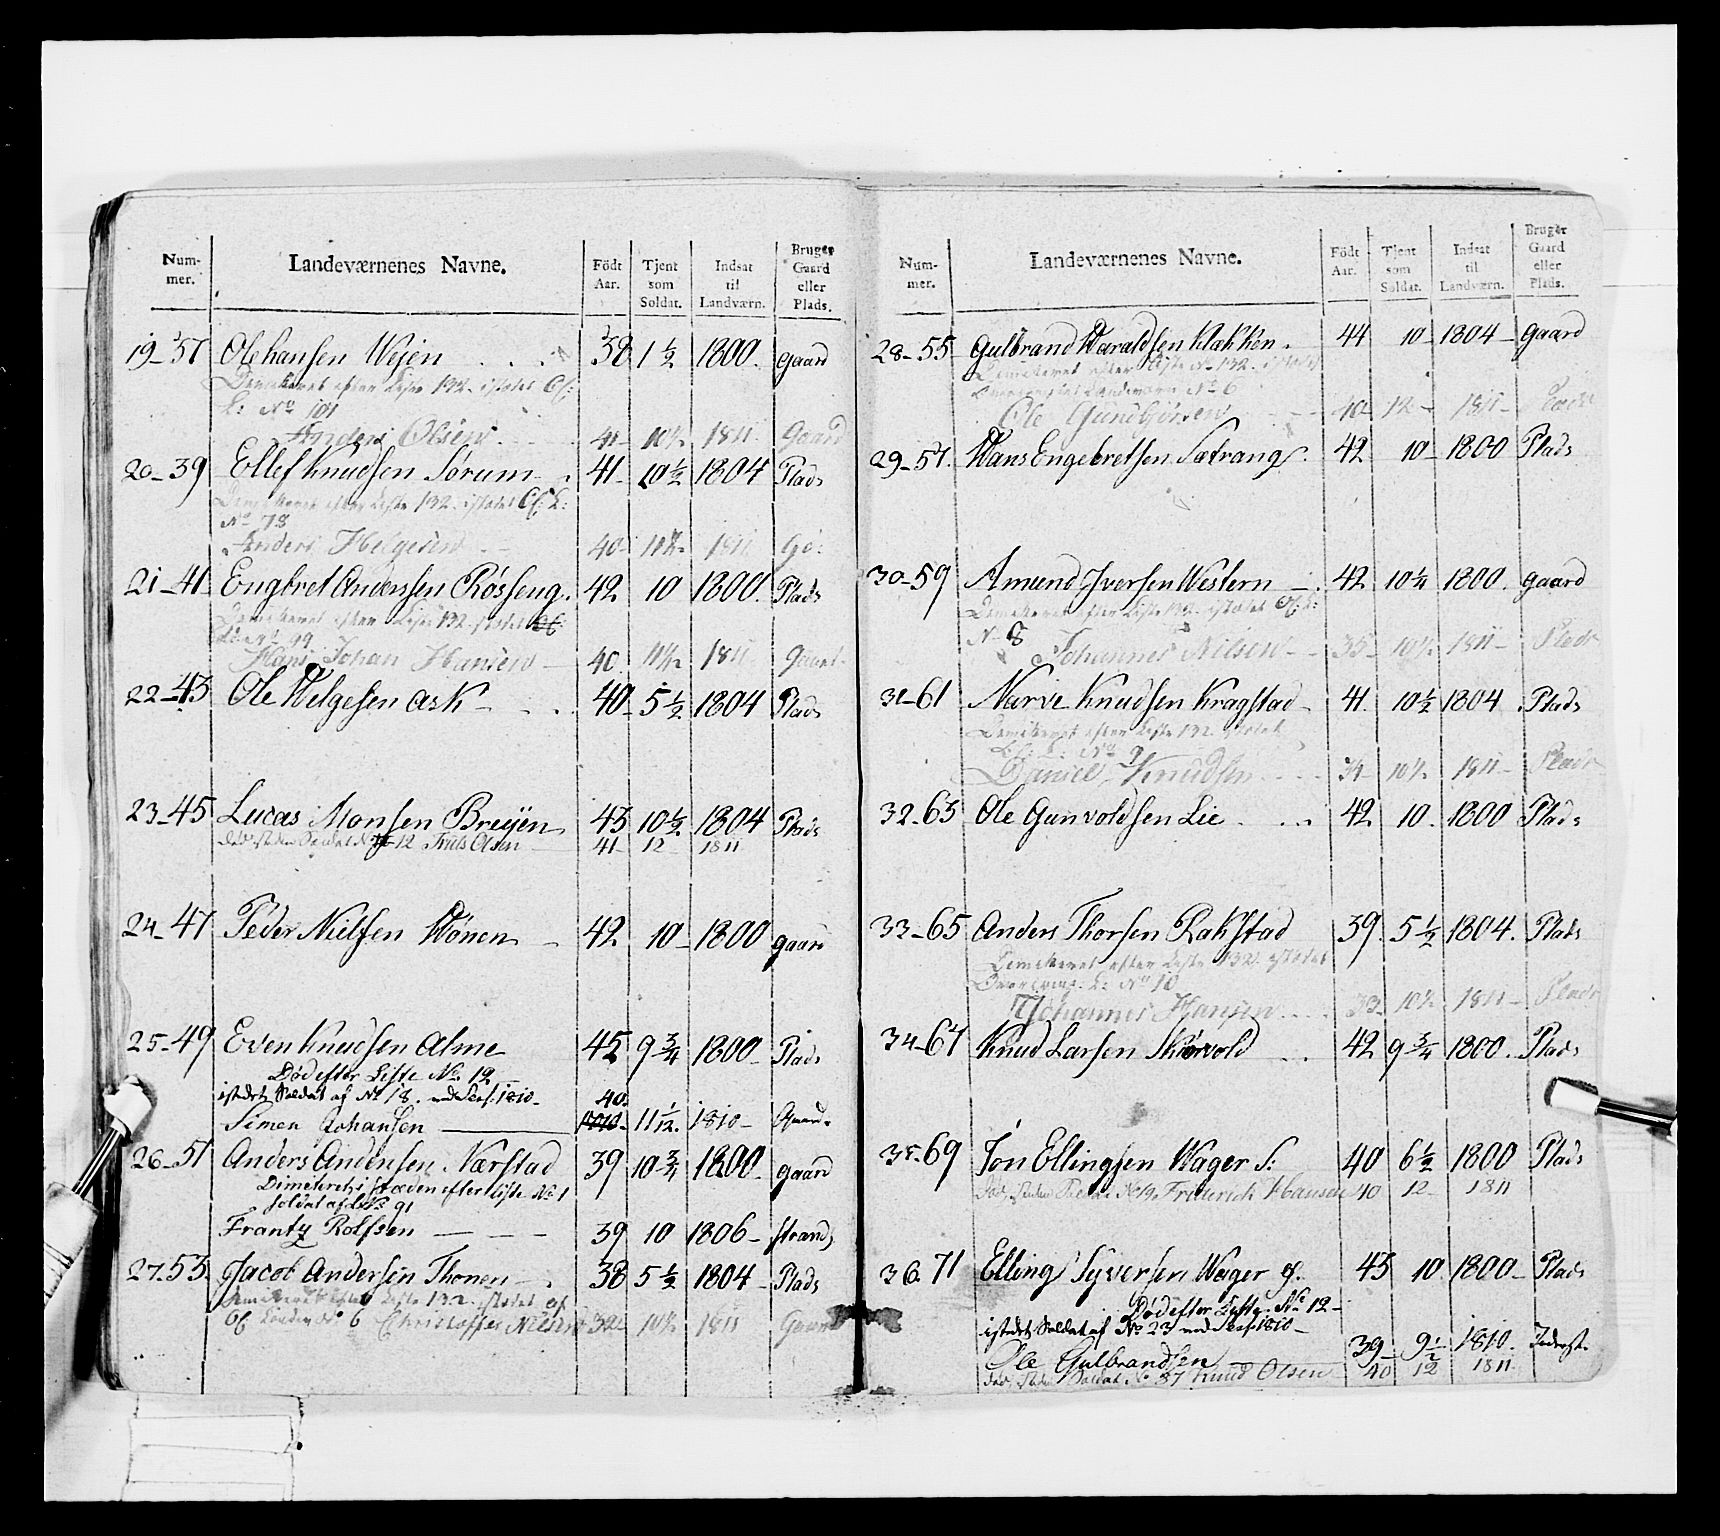 Num-mer. Landeværnenes Navne. Födt Aar. Tjent som Soldat. Indsat til Landværn. Bruger Gaard eller Plads.
19-37 Ole hansen Wejen 38 1 1/2 1800. gaard
Demiteret efter Liste 132. istædet
L: No 101
Anders Olsen 41 10 1/2 1811 Gaard
20-39 Ellef Knudsen Sørum 41 10 1/2 1804 Plads
Demiteret efter Liste 132. istædet
No 78
Anders Helgesen 40 1811
21-41 Engbret Andersen Rösseng. 42 10 1800. Plads
Demiteret efter Liste 132. istædet
99
Hans Johan Hansen 40 1811 Gaard
22-43 Ole Helgesen Ask 40 5 1/2 1804 Plads
23-45 Lucas Monsen Breyen 43 10 1/2 1804 Plads
død isteden Soldat 12 Truls Olsen 41 12 1811
24-47 Peder Nielsen Hönen 42 10 1800 gaard
25-49 Even Knudsen Alme 45 9 3/4 1800 Plads
Död efter Liste No. 12
istedet Soldat af No 18. 1810
40.
Simen Johansen 11 1/12. 1810 Gaard
26-51 Anders Andersen Nærstad 39 10 3/4 1800 gaard
Dimiteret i stæden efter Liste No 1
soldat af No 91
Frantz Rolfsen 39 10 1806 strands
27-53 Jacob Andersen Thonen 38 5 1/2 1804 Plads
Demiteret efter Liste 132. istædet af
No 6 Christoffer Nilsen 32 10 1/2 1811 Gaard
Num-mer. Landeværnenes Navne. Födt Aar. Tjent som Soldat. Indsat til Landværn. Bruger Gaard eller Plads.
28-55 Gulbrand Haraldsen Klækken. 44 10 1804 gaard
Demiteret efter Liste No 132. istædet
Landeværn No 6
Ole Gundbjørsen 40 12 1811 Plads
29-57. Hans Engebretsen Sætrang. 42 10 1800 Plads
30-59 Amund Iversen Western 42 10 1/4 1800. gaard
Demiteret efter Liste 132. istædet
No 8 Johannes Nilsen 35 10 1/2 1811 Plads
31-61 Narve Knudsen Kragstad 41. 10 1/2 1804 Plads
Demiteret efter Liste 132 istædet
No 9
Daniel Knudsen 34 10 1/2 1811 Plads
32-63 Ole Gunvoldsen Lie 42 10. 1800 Plads
33-65 Anders Thorsen Rakstad 39. 5 1/2 1804. Plads
Demiteret efter Liste 132. istædet
L: No 10
Johannes Hansen 33 10 1/2 1811 Plads
34-67 Knud Larsen Skiørvold 42 9 3/4 1800. Plads
35-69 Jon Ellingsen Wager S: 40 6 1/2 1800 Plads
død, isteden No 19 Friderich Hansen 40 12 1811
36-71 Elling Syversen Wager 43 10 1800 Plads
Död efter Liste No 12
istedet Soldat af No 23 1810
Ole Gulbrandsen 39 9 1/2 1810. Inderst
død, isteden Soldat No 37 Knud Olsen 40 12 1811